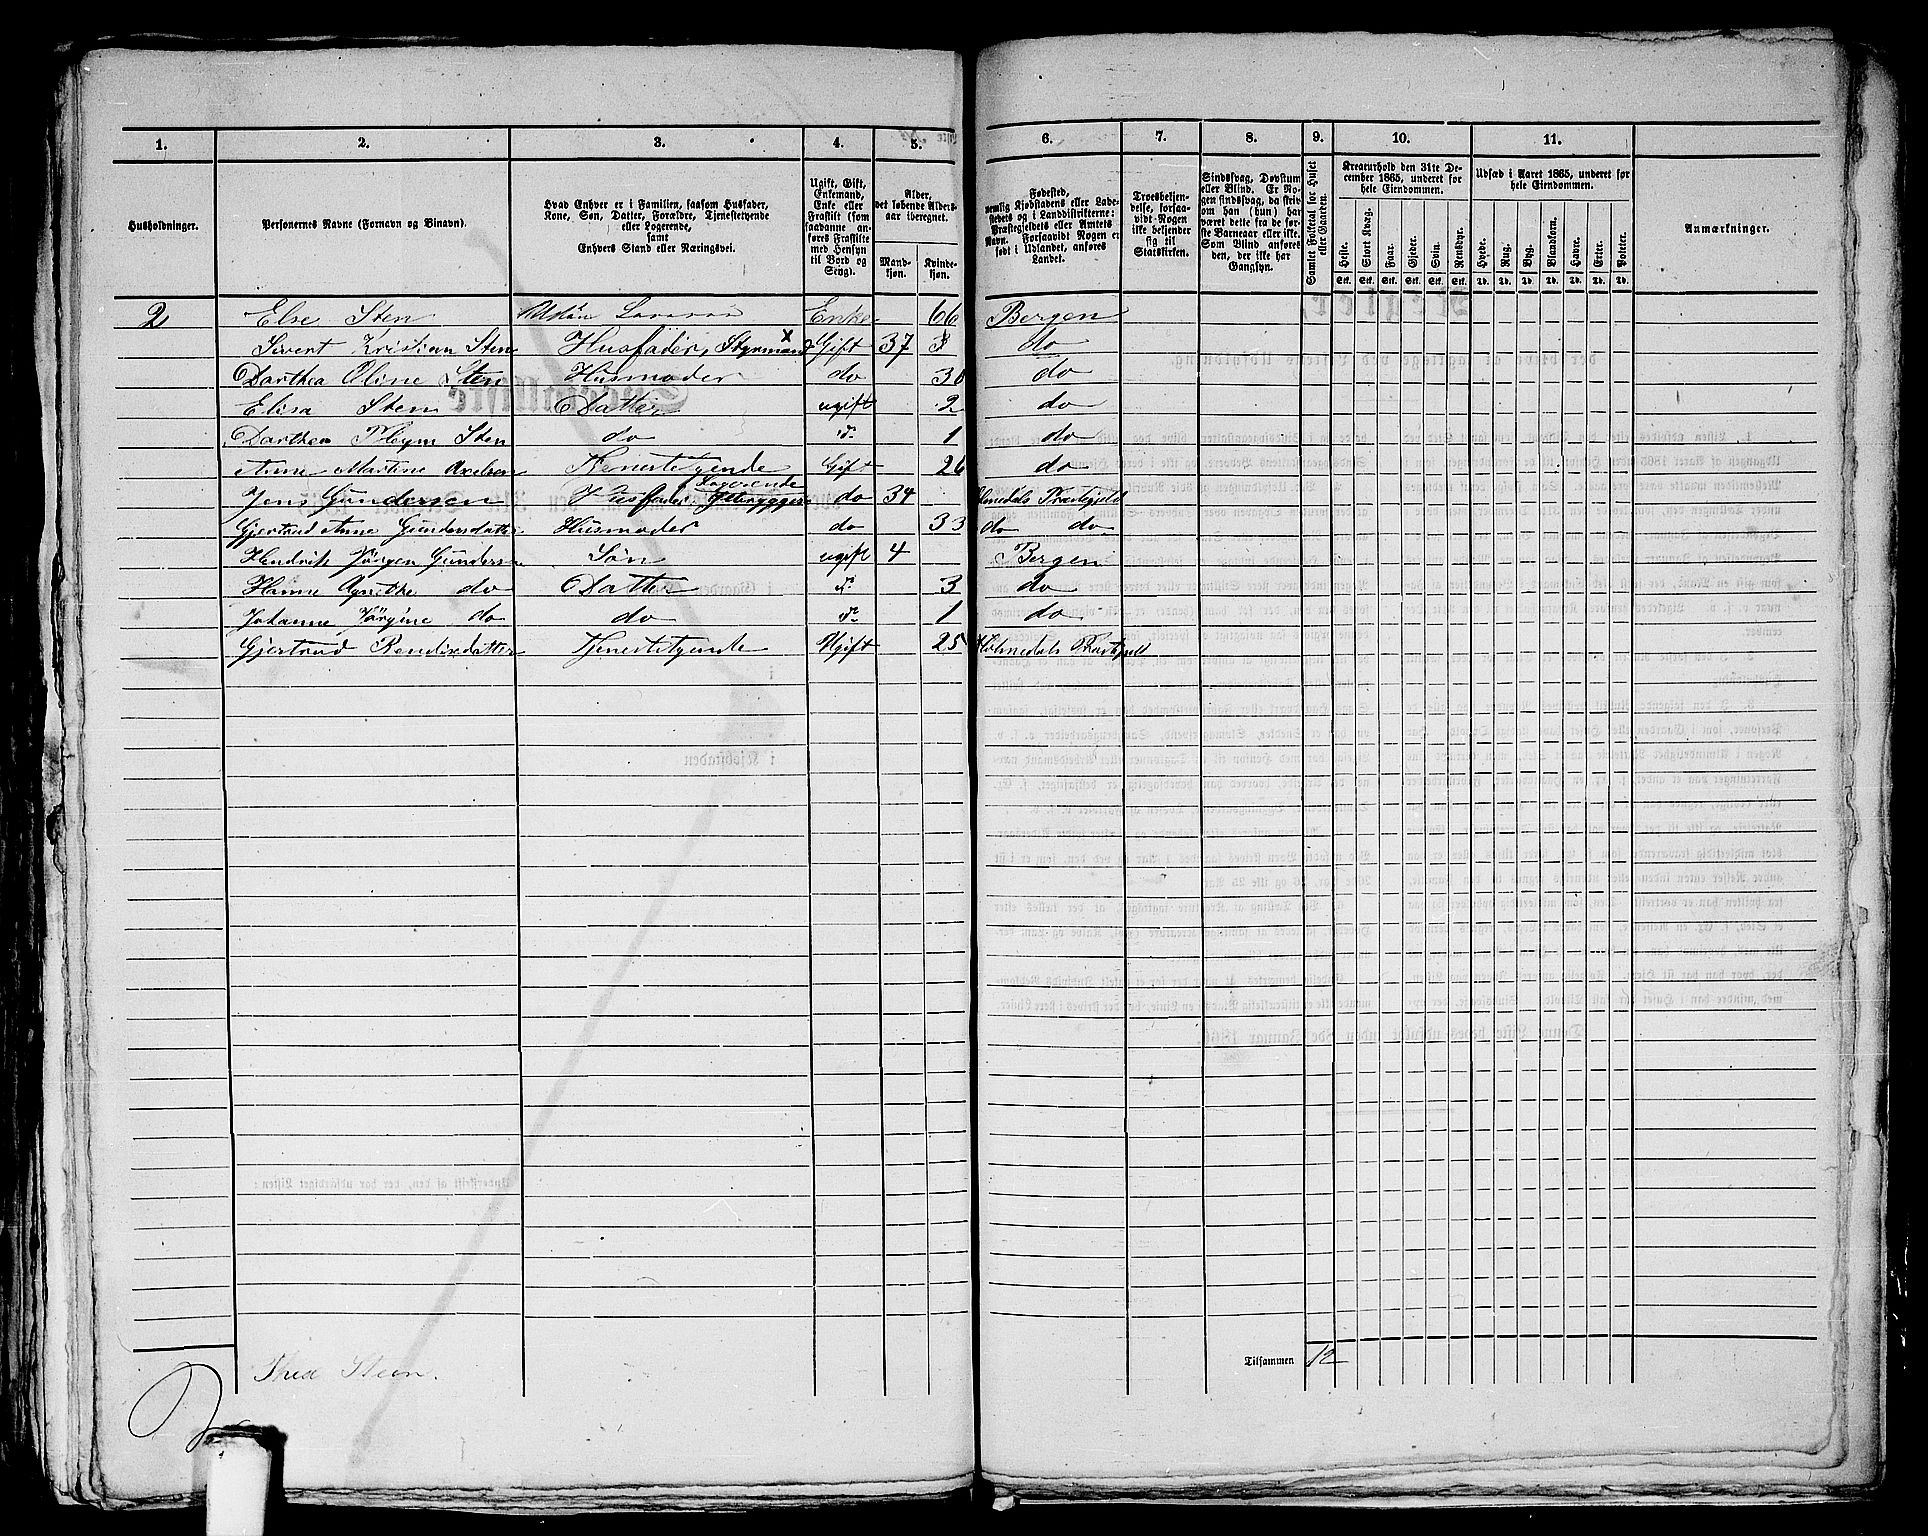 1. 2. 3. 4. 5. 6. 7. 8. 9. 10. 11.
Husholdninger.
Personernes Navne (Fornavn og Binavn).
Hvad Enhver er i Familien, saasom Husfader,
Kone, Søn, Datter, Forældre, Tjenestetyende
eller Logerende,
samt
Enhvers Stand eller Næringsvei.
Ugift, Gift,
Enkemand,
Enke eller
Fraskilt (som
saadanne an-
føres Fraskilte
med Hensyn
til Bord og
Seng).
Alder,
det løbende Alders-
aar iberegnet.
Mand-
kjøn.
Kvinde-
kjøn.
Fødested,
nemlig Kjøbstadens eller Lade-
stedets og i Landdistrikterne:
Præstegjeldets eller Amtets
Navn. Forsaavidt Nogen er
født i Udlandet, anføres
Landet.
Troesbekjen-
delse, forsaa-
vidt Nogen
ikke bekjender
sig til
Statskirken.
Sindssvag, Døvstum
eller Blind. Er No-
gen sindssvag, da skriv
om han (hun) har
været dette fra de før-
ste Barneaar eller ikke.
Som Blind anføres
den, der ikke har
Gangsyn.
Samlet Folketal for Huset
eller Gaarden.
Kreaturhold den 31te De-
cember 1865, underet for
hele Eiendommen.
Heste. Stort Kvæg. Faar. Gjeder. Svin. Rensdyr.
Stk. Stk. Stk. Stk. Stk. Stk.
Udsæd i Aaret 1865, underet for
hele Eiendommen.
Hvede. Rug. Byg. Blandkorn. Havre. Erter. Poteter.
Td. Td. Td. Td. Td. Td. Td.
Anmærkninger.
2 Else Sten Enke 66 Bergen
Sivert Kristian Sten Husfader, Styrmand Gift 37 do
Dorthea Oline Sten Husmoder do 30 do
Elisa Sten Datter ugift 2 do
Dorthea Sten do d. 1 do
Anne Martine Axelsen Tjenestetyende Gift 26 do
Logerende
Jens Gundersen Husfader do 34 Holmedals Præstegjeld
Gjertrud Anne Gundersdatter Husmoder do 33 do do
Hendrik Jørgen Gundersen Søn ugift 4 Bergen
Hanne Agnethe do Datter d. 3 do
Johanne Jørgine do do d. 1 do
Gjertrud Bendixdatter Tjenestetyende Ugift 25 Holmedals Præstegjeld
Tilsammen 12
Thea Steen.